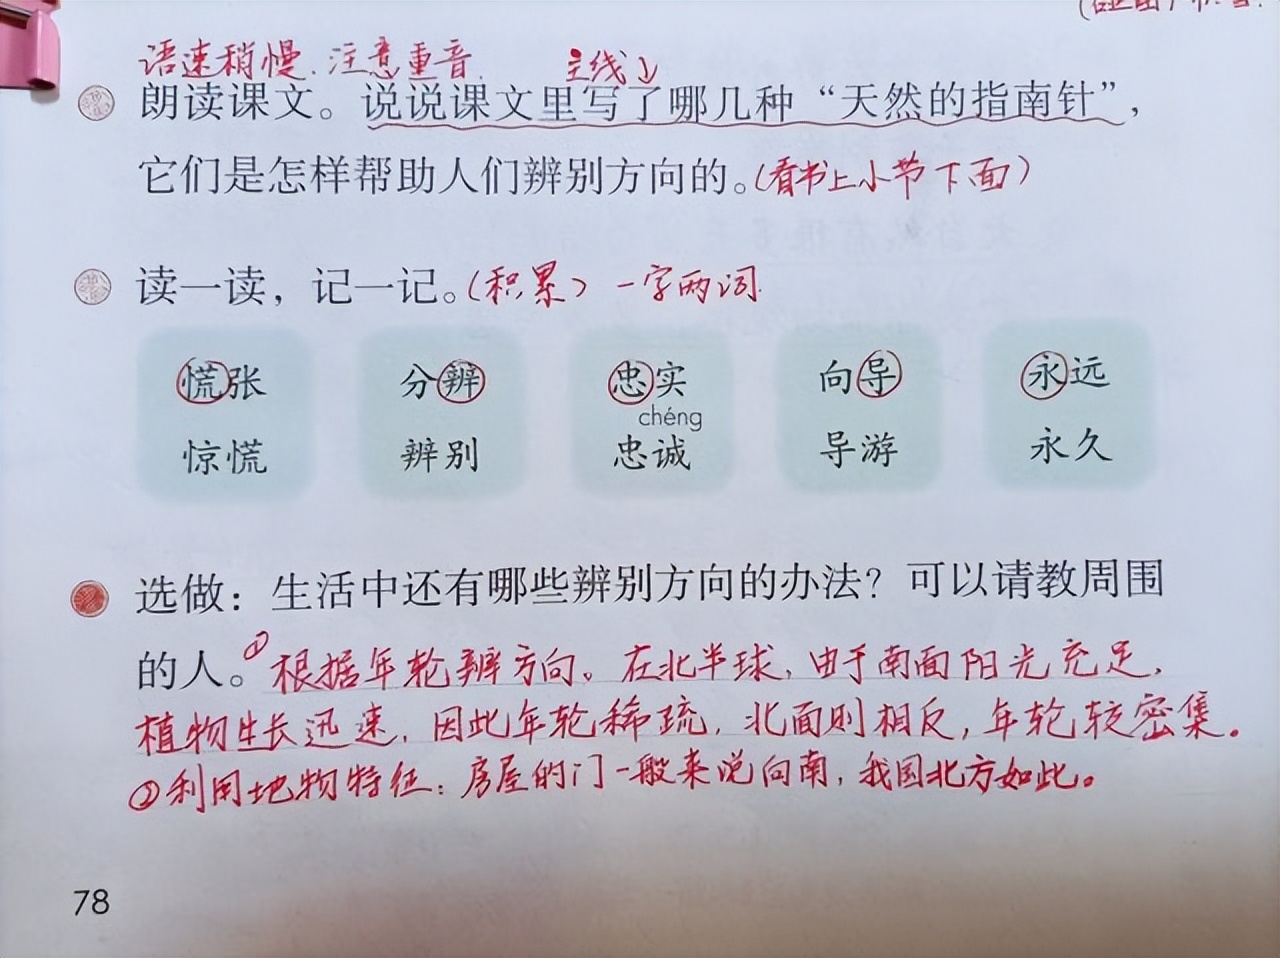 语速稍慢.注意重音. 主线↓
朗读课文。说说课文里写了哪几种“天然的指南针”，
它们是怎样帮助人们辨别方向的。(看书上小节下面)
读一读，记一记。(积累) 一字两词.
慌张 分辨 忠实 向导 永远
chéng
惊慌 辨别 忠诚 导游 永久
选做：生活中还有哪些辨别方向的办法？可以请教周围
的人。①根据年轮辨方向。在北半球，由于南面阳光充足，
植物生长迅速，因此年轮稀疏，北面则相反，年轮较密集。
②利用地物特征：房屋的门一般来说向南，我国北方如此。
78